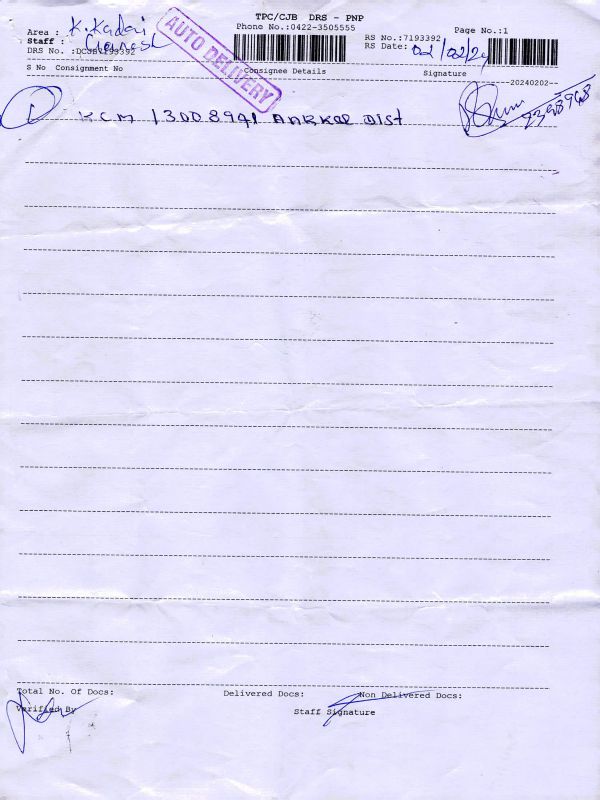 TPC/CJB DRS - PNP
Phone No.:0422-3505555
Page No.:1
Area : K.Kadai
RS No.:7193392
Staff : Ganesh
RS Date: 02/02/24
DRS No. :DCJB7193392
AUTO DELIVERY
S No Consignment No Consignee Details Signature
20240202
1 KCM 13008941 Dist
Total No. Of Docs: Delivered Docs: Non Delivered Docs:
Verified By
Staff Signature